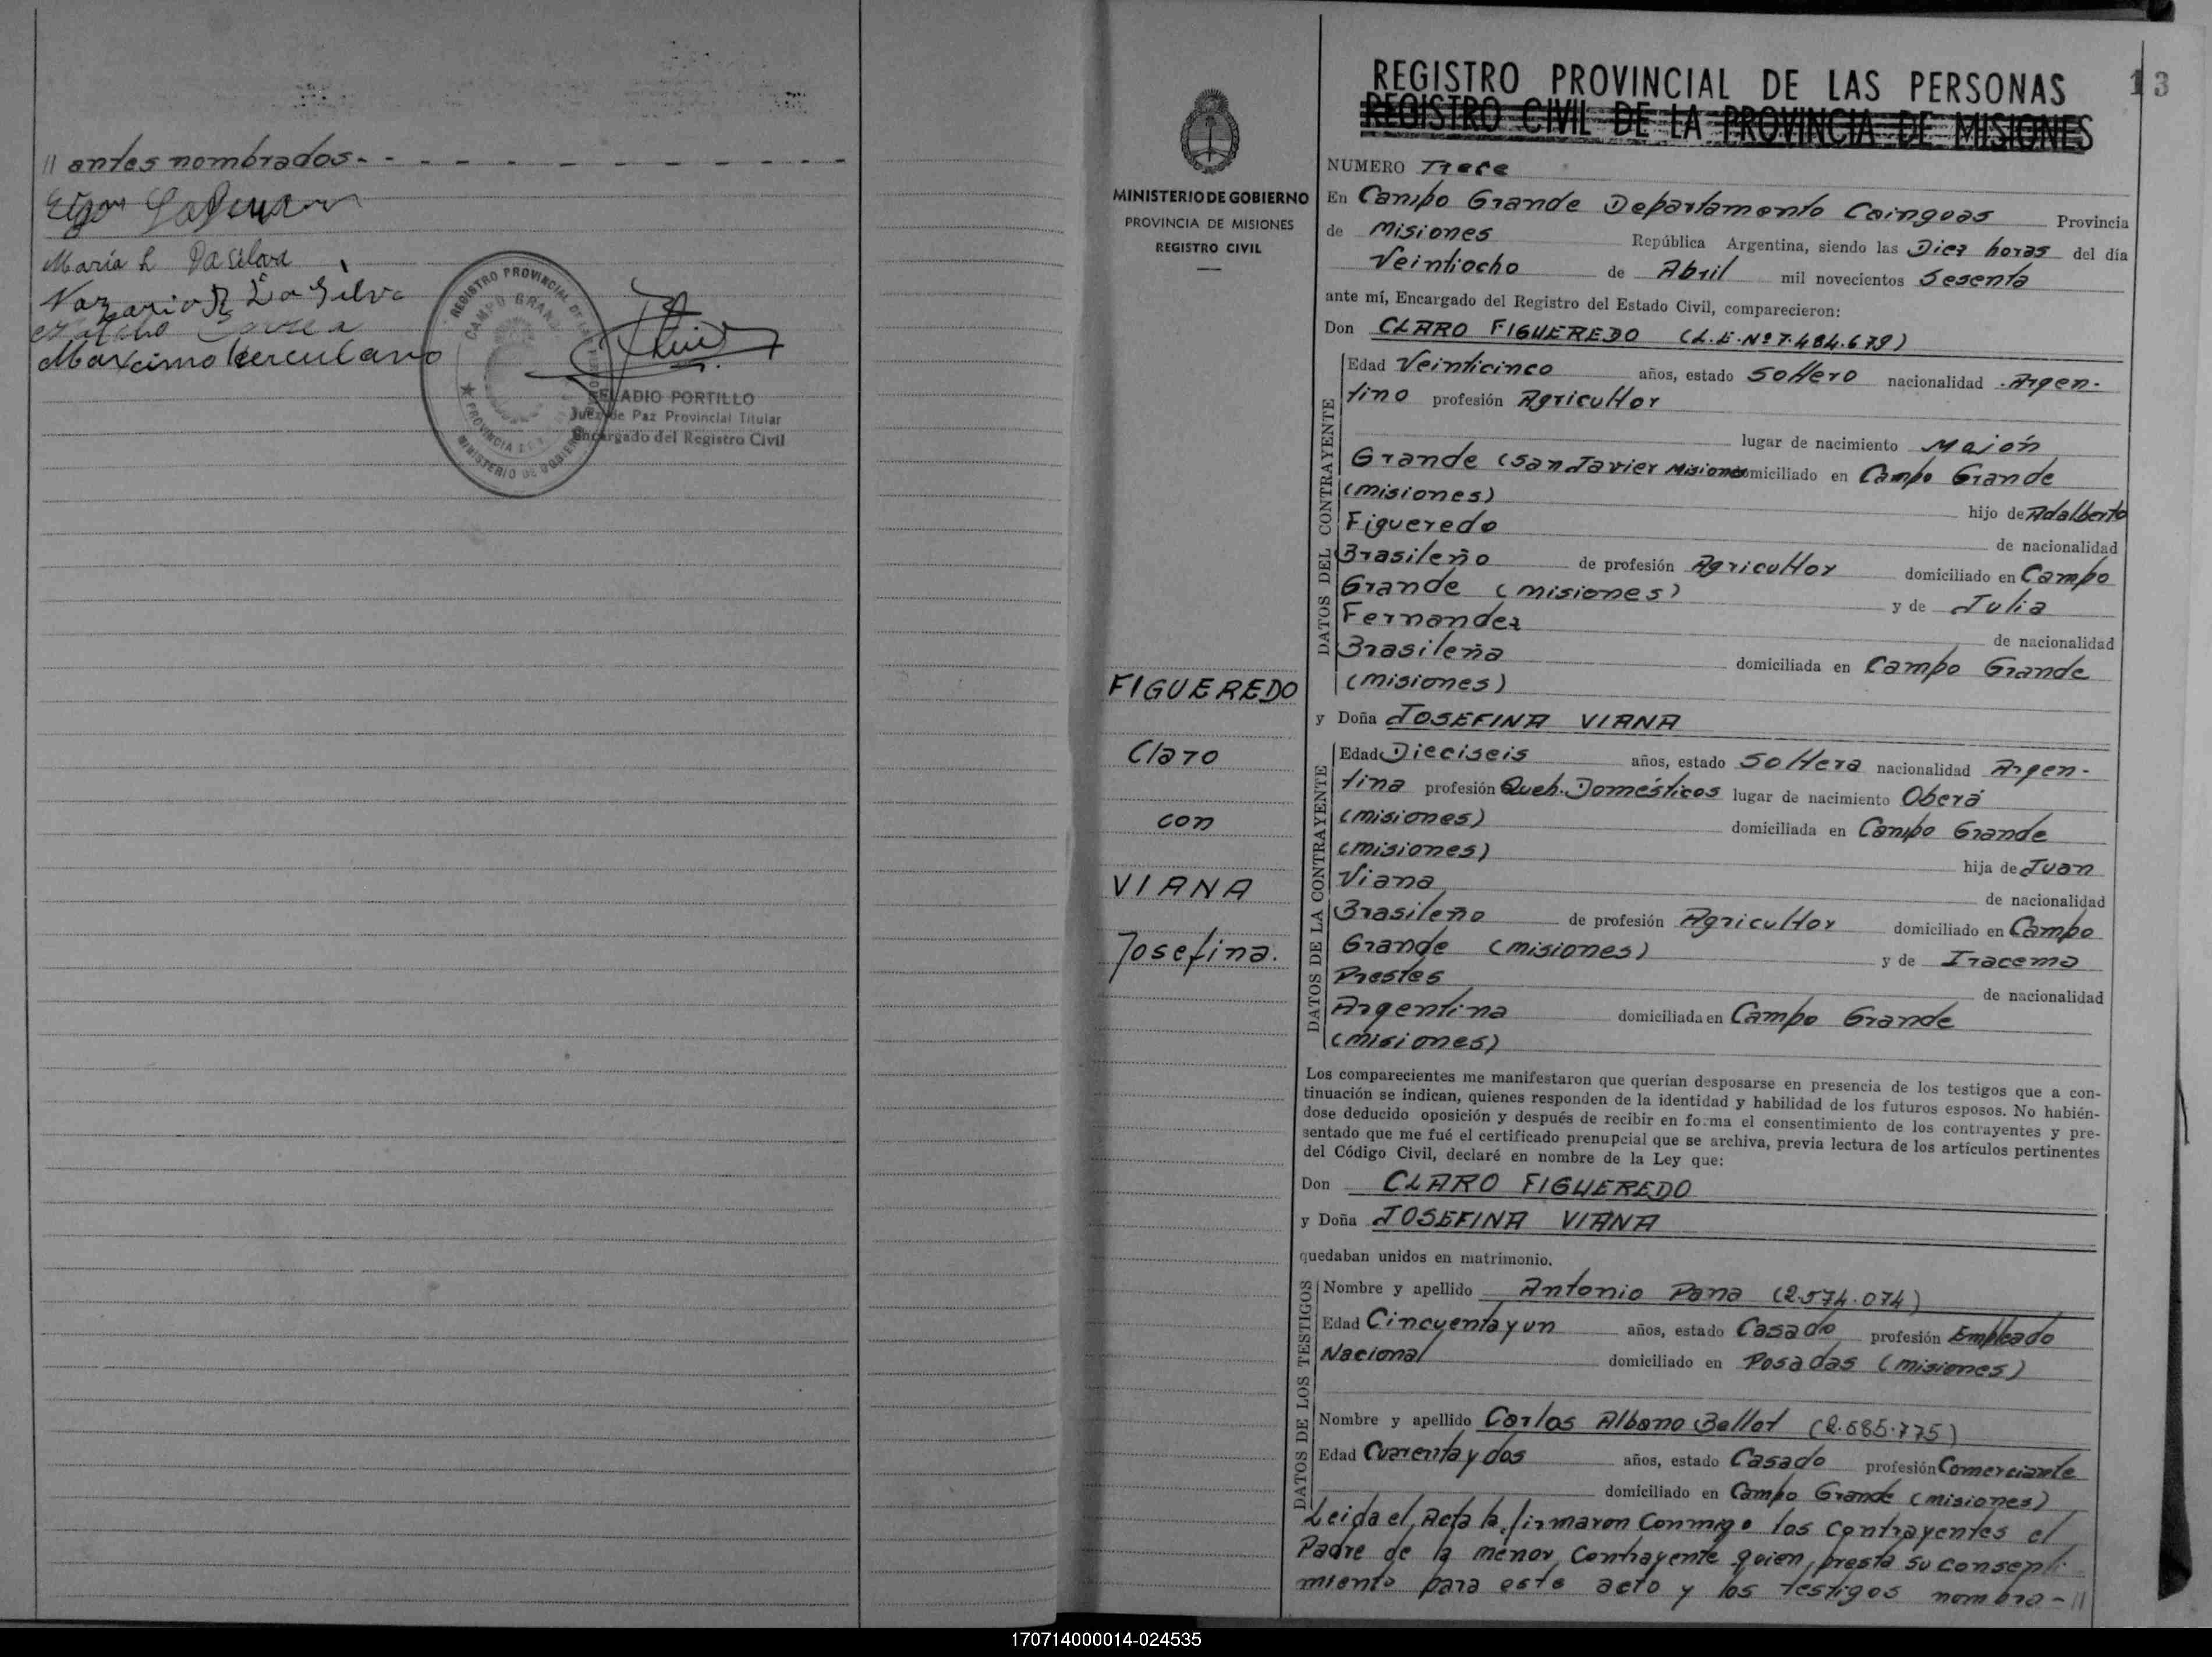 // antes nombrados
María L Da Silva
Nazario R Da Silva
Maxcimo Herculano
REGISTRO PROVINCIAL DE LAS PERSONAS
CAMPO GRANDE
PROVINCIA DE
MINISTERIO DE GOBIERNO
ELADIO PORTILLO
Juez de Paz Provincial Titular
Encargado del Registro Civil
MINISTERIO DE GOBIERNO
PROVINCIA DE MISIONES
REGISTRO CIVIL
FIGUEREDO
Claro
con
VIANA
Josefina.
REGISTRO PROVINCIAL DE LAS PERSONAS 13
REGISTRO CIVIL DE LA PROVINCIA DE MISIONES
NUMERO Trece
En Campo Grande Departamento Cainguas Provincia
de Misiones República Argentina, siendo las Diez horas del día
Veintiocho de Abril mil novecientos Sesenta
ante mí, Encargado del Registro del Estado Civil, comparecieron:
Don CLARO FIGUEREDO (L.E.Nº 7.484.679)
DATOS DEL CONTRAYENTE
Edad Veinticinco años, estado Soltero nacionalidad Argen-
tino profesión Agricultor
lugar de nacimiento Mojón
Grande (San Javier Misiones domiciliado en Campo Grande
(Misiones) hijo de Adalberto
Figueredo de nacionalidad
Brasileño de profesión Agricultor domiciliado en Campo
Grande (Misiones) y de Julia
Fernandez de nacionalidad
Brasileña domiciliada en Campo Grande
(Misiones)
y Doña JOSEFINA VIANA
DATOS DE LA CONTRAYENTE
Edad Dieciseis años, estado Soltera nacionalidad Argen-
tina profesión Queh. Domésticos lugar de nacimiento Oberá
(Misiones) domiciliada en Campo Grande
(Misiones) hija de Juan
Viana de nacionalidad
Brasileño de profesión Agricultor domiciliado en Campo
Grande (Misiones) y de Iracema
Prestes de nacionalidad
Argentina domiciliada en Campo Grande
(Misiones)
Los comparecientes me manifestaron que querían desposarse en presencia de los testigos que a con-
tinuación se indican, quienes responden de la identidad y habilidad de los futuros esposos. No habién-
dose deducido oposición y después de recibir en forma el consentimiento de los contrayentes y pre-
sentado que me fué el certificado prenupcial que se archiva, previa lectura de los artículos pertinentes
del Código Civil, declaré en nombre de la Ley que:
Don CLARO FIGUEREDO
y Doña JOSEFINA VIANA
quedaban unidos en matrimonio.
DATOS DE LOS TESTIGOS
Nombre y apellido Antonio Pana (2.574.074)
Edad Cincuenta y un años, estado Casado profesión Empleado
Nacional domiciliado en Posadas (Misiones)
Nombre y apellido Carlos Albano Ballot (2.685.775)
Edad Cuarenta y dos años, estado Casado profesión Comerciante
domiciliado en Campo Grande (Misiones)
Leida el Acta la firmaron Conmigo los Contrayentes el
Padre de la menor Contrayente quien presta su consenti-
miento para este acto y los testigos nombra-//
170714000014-024535